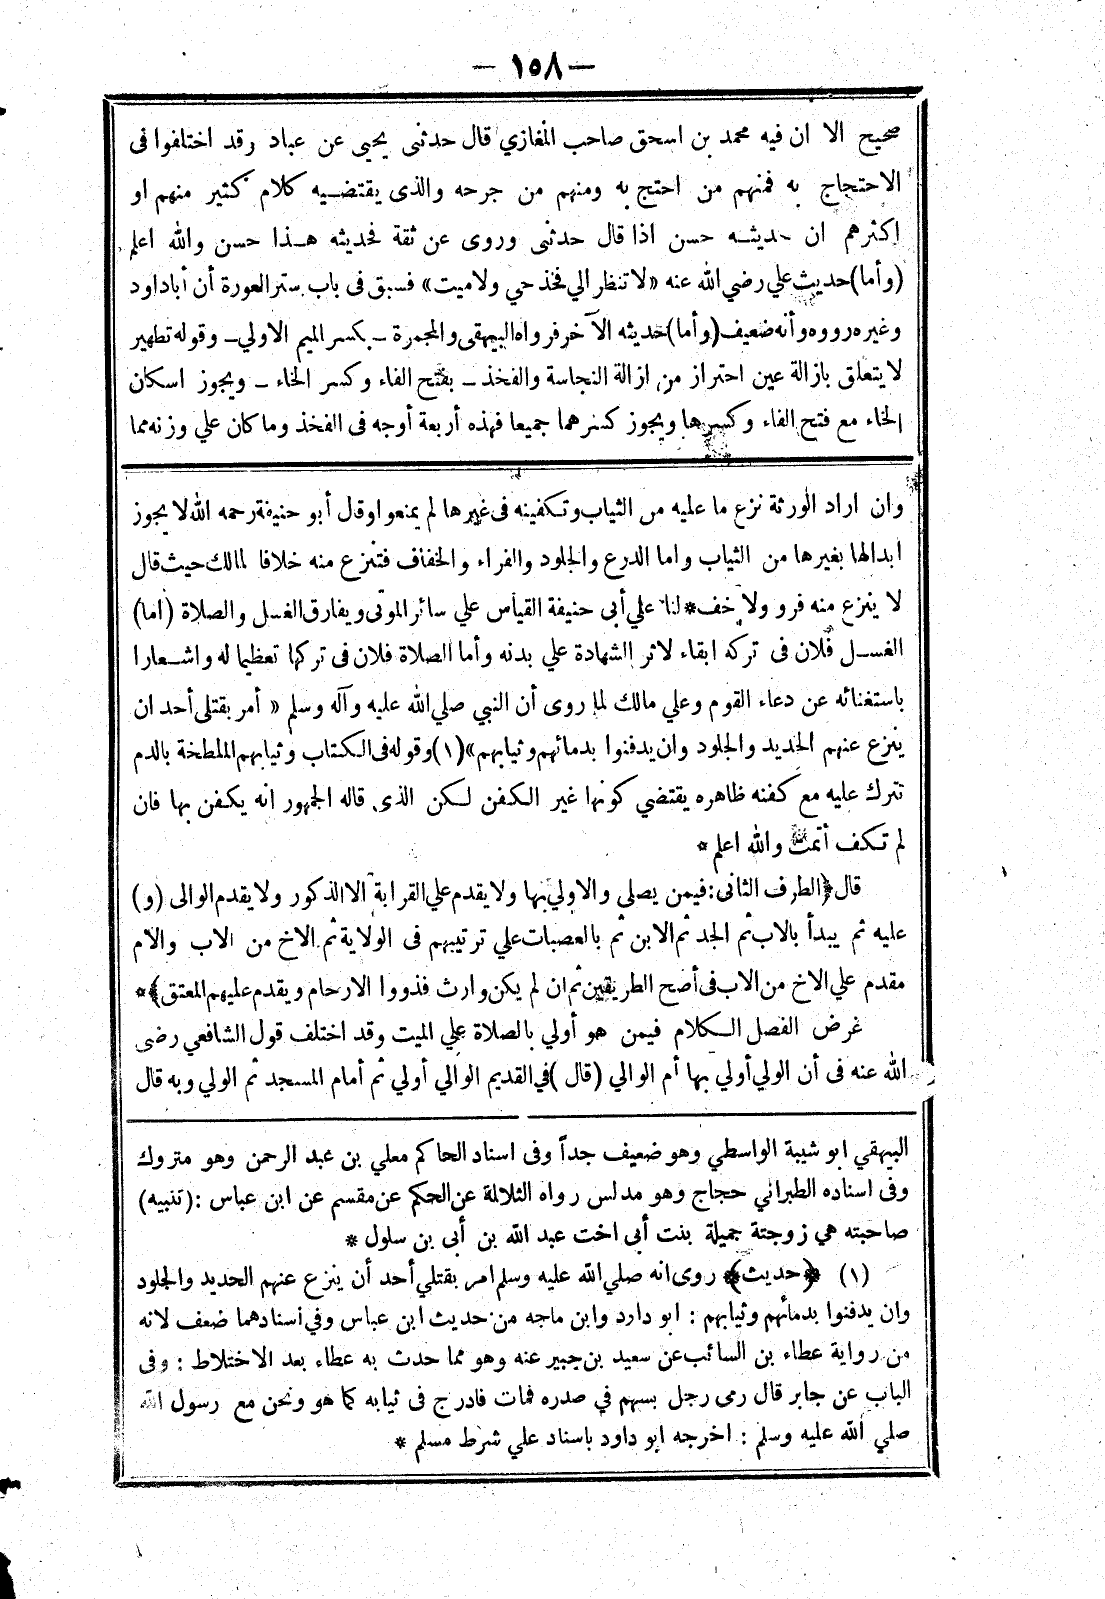 — ١٥٨ —
صحيح الا ان فيه محمد بن اسحق صاحب المغازي قال حدثنى يحيى عن عباد وقد اختلفوا فى
الاحتجاج به فمنهم من احتج به ومنهم من جرحه والذى يقتضيه كلام كثير منهم او
اكثرهم ان حديثه حسن اذا قال حدثنى وروى عن ثقة فحديثه هذا حسن والله اعلم
(وأما) حديث علي رضي الله عنه «لا تنظر الي فخذ حي ولا ميت» فسبق فى باب ستر العورة أن أبا داود
وغيره رووه وأنه ضعيف (وأما) حديثه الآخر فرواه البيهقى والمجمرة ـ بكسر الميم الاولي ـ وقوله تطهير
لا يتعلق بازالة عين احتراز من ازالة النجاسة والفخذ ـ بفتح الفاء وكسر الخاء ـ ويجوز اسكان
الخاء مع فتح الفاء وكسرها ويجوز كسرهما جميعا فهذه أربعة أوجه فى الفخذ وما كان علي وزنه مما
وان اراد الورثة نزع ما عليه من الثياب وتكفينه فى غيرها لم يمنعوا وقل أبو حنيفة رحمه الله لا يجوز
ابدالها بغيرها من الثياب واما الدرع والجلود والفراء والخفاف فتنزع منه خلافا لمالك حيث قال
لا ينزع منه فرو ولا خف * لنا علي أبى حنيفة القياس علي سائر الموتى ويفارق الغسل والصلاة (اما)
الغسل فلان فى تركه ابقاء لاثر الشهادة علي بدنه وأما الصلاة فلان فى تركها تعظيما له واشعارا
باستغنائه عن دعاء القوم وعلي مالك لما روى أن النبي صلي الله عليه وآله وسلم « أمر بقتلى أحد ان
ينزع عنهم الحديد والجلود وان يدفنوا بدمائهم وثيابهم» (١) وقوله فى الكتاب وثيابهم الملطخة بالدم
تترك عليه مع كفنه ظاهره يقتضي كونها غير الكفن لكن الذى قاله الجمهور انه يكفن بها فان
لم تكف أتمت والله اعلم *
قال ﴿الطرف الثانى: فيمن يصلى والاولي بها ولا يقدم علي القرابة الا الذكور ولا يقدم الوالى (و)
عليه ثم يبدأ بالاب ثم الجد ثم الابن ثم بالعصبات علي ترتيبهم فى الولاية ثم الاخ من الاب والام
مقدم علي الاخ من الاب فى أصح الطريقين ثم ان لم يكن وارث فذووا الارحام ويقدم عليهم المعتق﴾ *
غرض الفصل الكلام فيمن هو أولي بالصلاة علي الميت وقد اختلف قول الشافعي رضى
الله عنه فى أن الولي أولي بها أم الوالي (قال) في القديم الوالي أولي ثم أمام المسجد ثم الولي وبه قال
البيهقي ابو شيبة الواسطي وهو ضعيف جداً وفى اسناد الحاكم معلي بن عبد الرحمن وهو متروك
وفى اسناده الطبراني حجاج وهو مدلس رواه الثلاثة عن الحكم عن مقسم عن ابن عباس : (تنبيه)
صاحبته هي زوجتة جميلة بنت أبى اخت عبد الله بن أبى بن سلول *
(١) ﴿حديث﴾ روى انه صلي الله عليه وسلم امر بقتلي أحد أن ينزع عنهم الحديد والجلود
وان يدفنوا بدمائهم وثيابهم : ابو دارد وابن ماجه من حديث ابن عباس وفي اسنادهما ضعف لانه
من رواية عطاء بن السائب عن سعيد بن جبير عنه وهو مما حدث به عطاء بعد الاختلاط : وفى
الباب عن جابر قال رمى رجل بسهم في صدره فمات فادرج فى ثيابه كما هو ونحن مع رسول الله
صلي الله عليه وسلم : اخرجه ابو داود باسناد علي شرط مسلم *